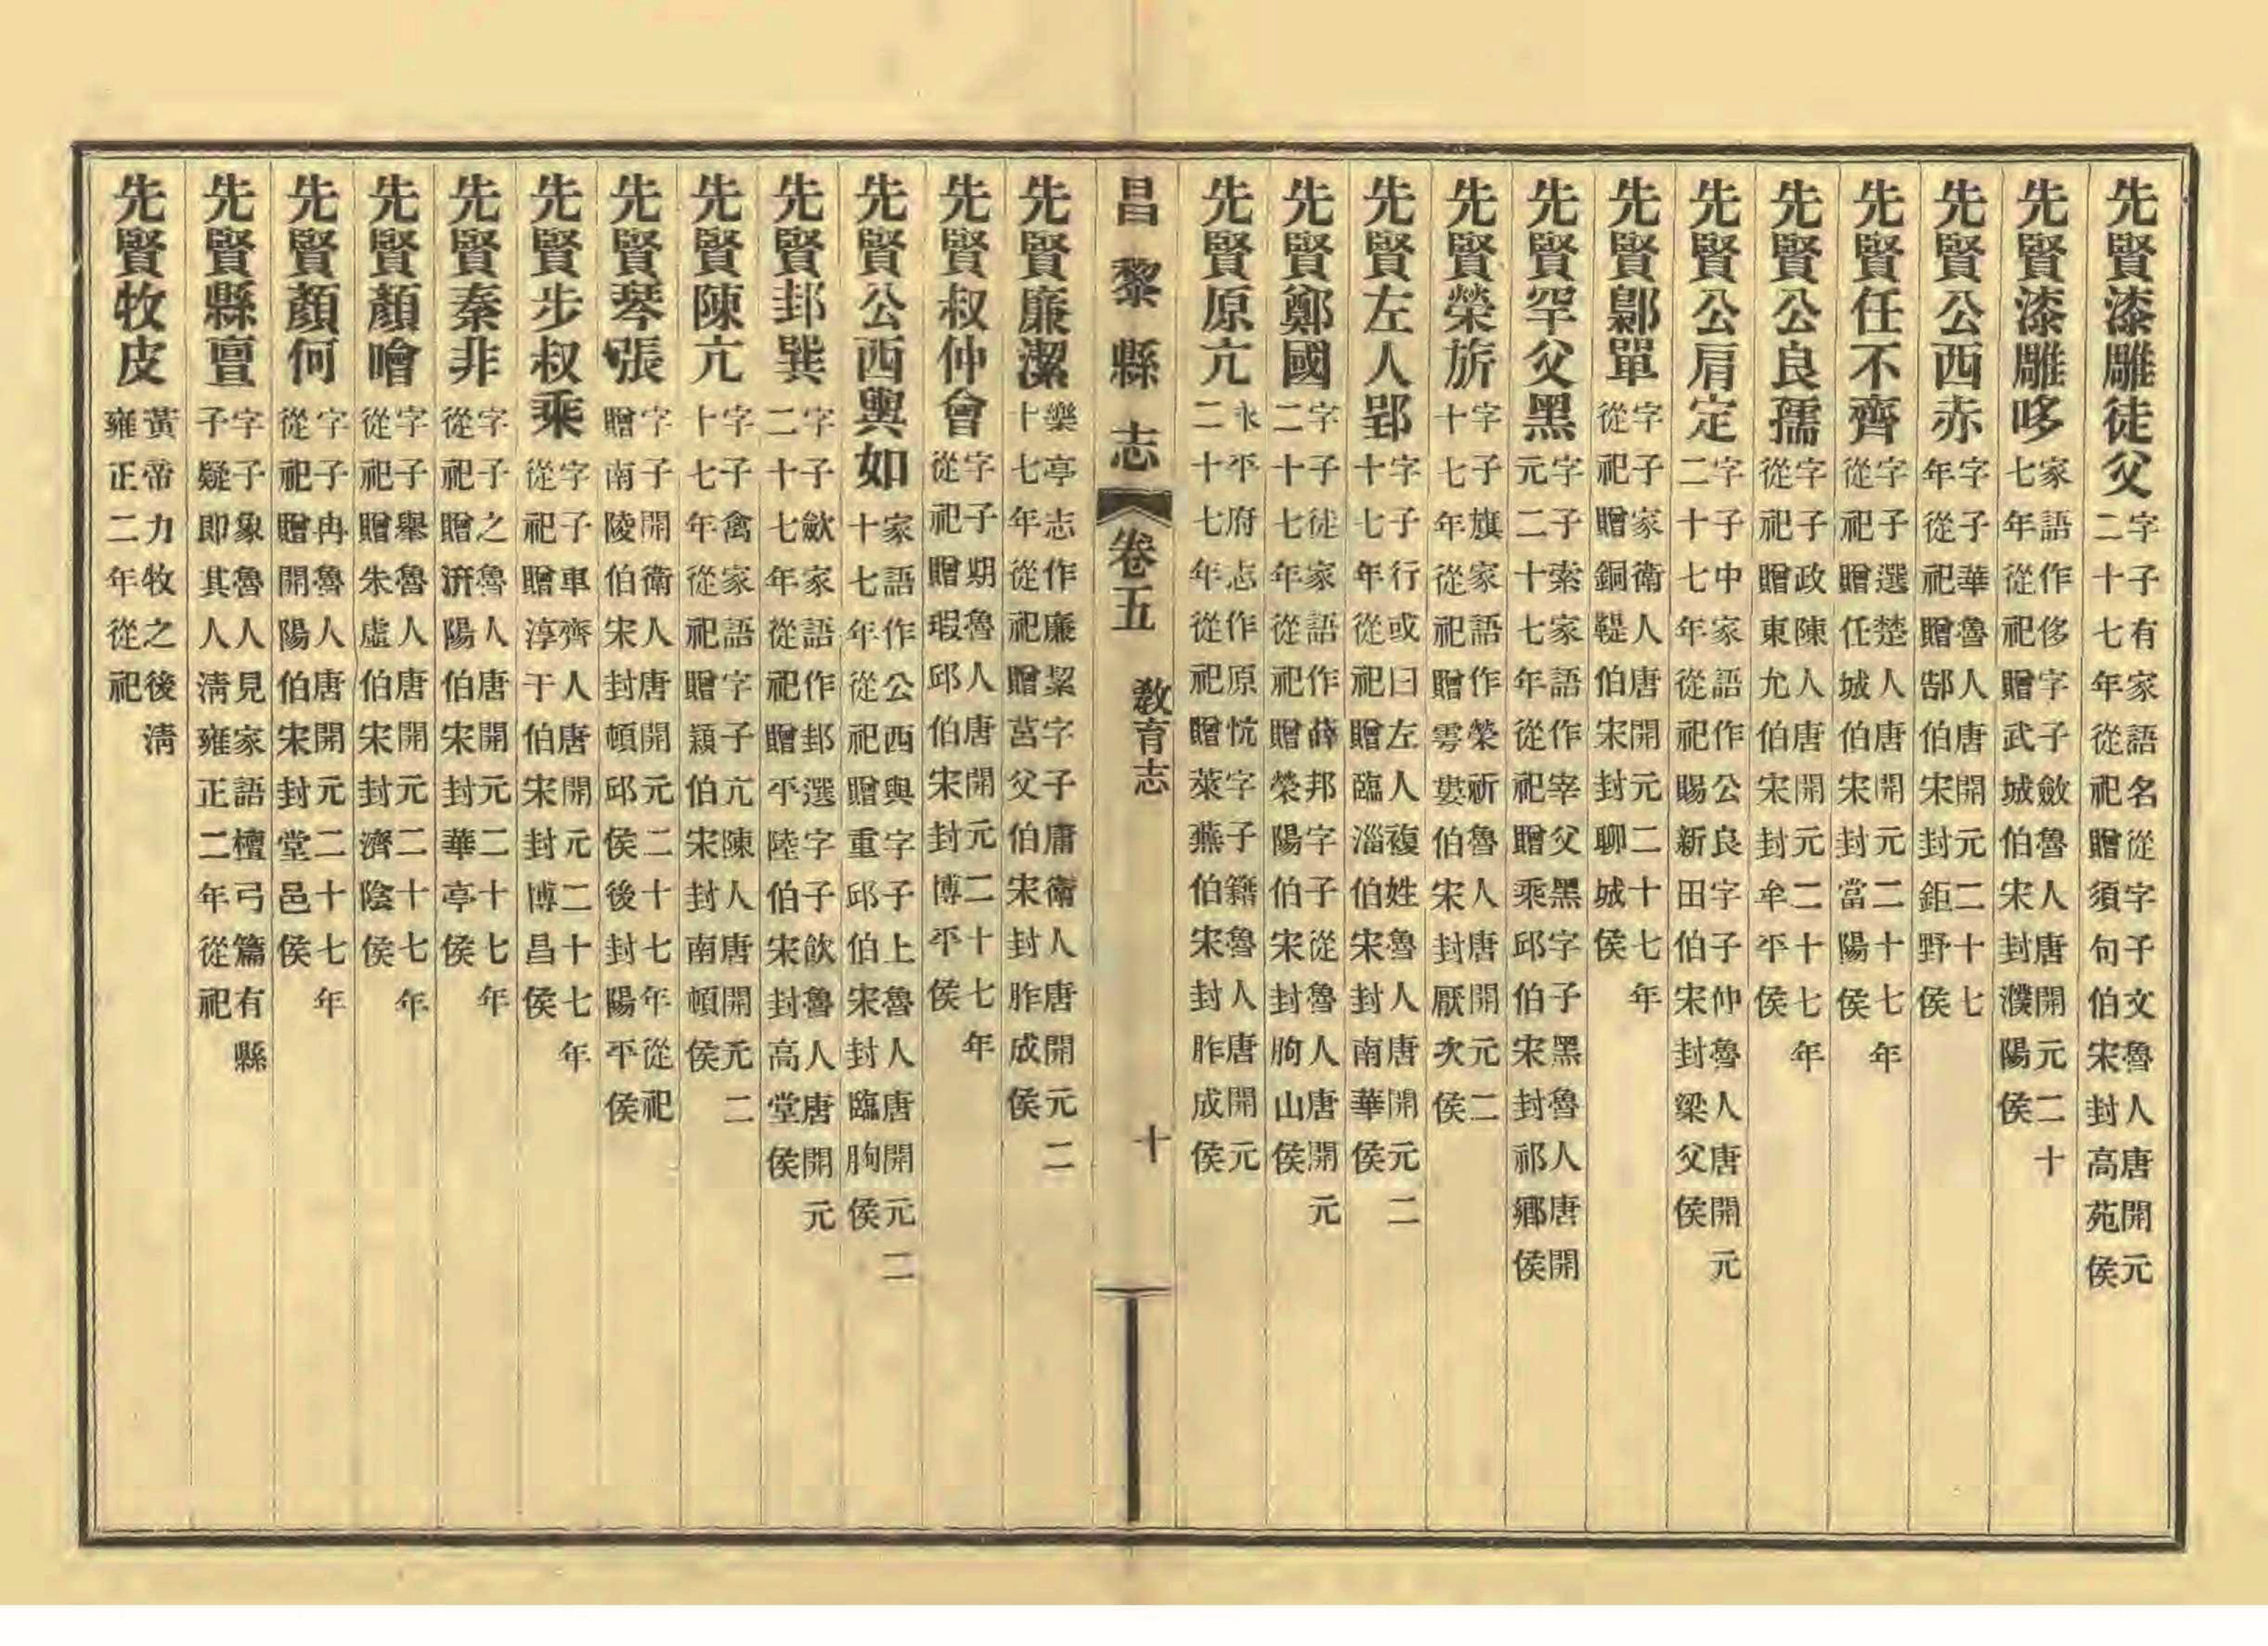 先賢漆雕徒父字子有家語名從字子文魯人唐開元二十七年從祀贈須句伯宋封高苑侯
先賢漆雕哆家語作侈字子斂魯人唐開元二十七年從祀贈武城伯宋封濮陽侯
先賢公西赤字子華魯人唐開元二十七年從祀贈郜伯宋封鉅野侯
先賢任不齊字子選楚人唐開元二十七年從祀贈任城伯宋封當陽侯
先賢公良孺字子政陳人唐開元二十七年從祀贈東尤伯宋封牟平侯
先賢公肩定字子中家語作公良字子仲魯人唐開元二十七年從祀賜新田伯宋封梁父侯
先賢鄡單字子家衛人唐開元二十七年從祀贈銅鞮伯宋封聊城侯
先賢罕父黑字子索家語作宰父黑字子黑魯人唐開元二十七年從祀贈乘邱伯宋封祁鄉侯
先賢榮旂字子旗家語作榮祈魯人唐開元二十七年從祀贈雩婁伯宋封厭次侯
先賢左人郢字子行或曰左人複姓魯人唐開元二十七年從祀贈臨淄伯宋封南華侯
先賢鄭國字子徒家語作薛邦字子從魯人唐開元二十七年從祀贈榮陽伯宋封朐山侯
先賢原亢永平府志作原忼字子籍魯人唐開元二十七年從祀贈萊蕪伯宋封胙成侯
昌黎縣志 卷五 教育志 十
先賢廉潔樂亭志作廉絜字子庸衛人唐開元二十七年從祀贈莒父伯宋封胙成侯
先賢叔仲會字子期魯人唐開元二十七年從祀贈瑕邱伯宋封博平侯
先賢公西輿如家語作公西與字子上魯人唐開元二十七年從祀贈重邱伯宋封臨朐侯
先賢邽巽字子歛家語作邽選字子飲魯人唐開元二十七年從祀贈平陸伯宋封高堂侯
先賢陳亢字子禽家語字子亢陳人唐開元二十七年從祀贈潁伯宋封南頓侯
先賢琴張字子開衛人唐開元二十七年從祀贈南陵伯宋封頓邱侯後封陽平侯
先賢步叔乘字子車齊人唐開元二十七年從祀贈淳于伯宋封博昌侯
先賢秦非字子之魯人唐開元二十七年從祀贈汧陽伯宋封華亭侯
先賢顏噲字子舉魯人唐開元二十七年從祀贈朱虛伯宋封濟陰侯
先賢顏何字子冉魯人唐開元二十七年從祀贈開陽伯宋封堂邑侯
先賢縣亶字子象魯人見家語檀弓篇有縣子疑即其人清雍正二年從祀
先賢牧皮黃帝力牧之後清雍正二年從祀